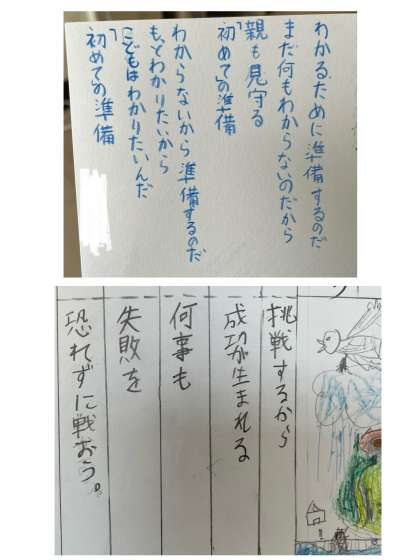 わかるために準備するのだ
まだ何もわからないのだから
親も見守る
「初めて」の準備
わからないから準備するのだ
もっとわかりたいから
こどもはわかりたいんだ
「初めて」の準備
挑戦するから
成功が生まれる
何事も
失敗を
恐れずに戦おう。